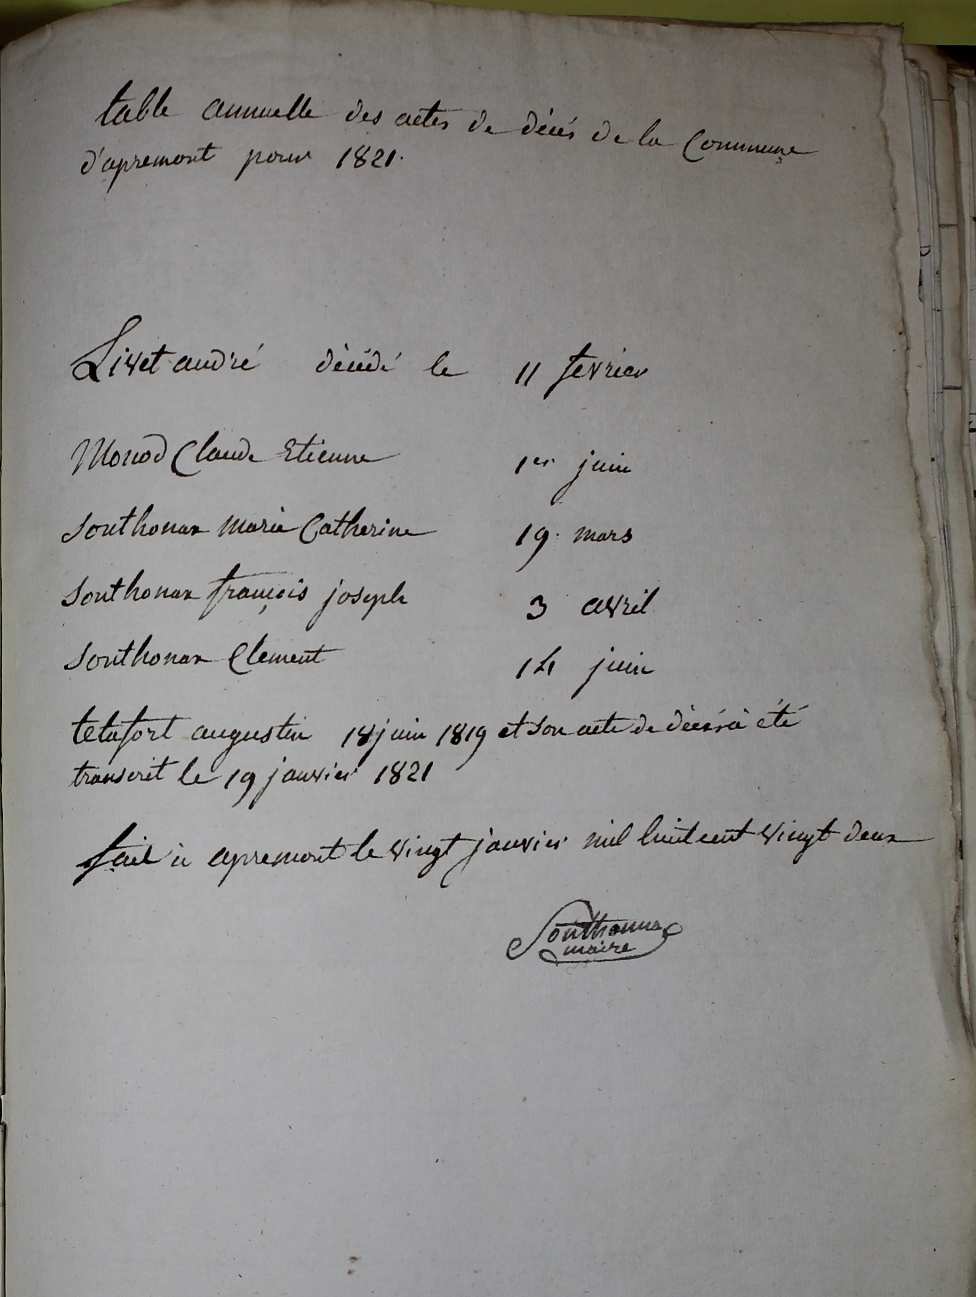 table annuelle des actes de décés de la Commune
d'apremont pour 1821.
Livet andré décédé le 11 fevrier
Monod Claude Etienne 1er juin
Southonax marie Catherine 19 mars
Southonax françois joseph 3 avril
Southonax Clement 14 juin
tetafort augustin 18 juin 1819 et son acte de décés à été
transcrit le 19 janvier 1821
fait à apremont le vingt janvier mil huit cent vingt deux
Southonax
maire